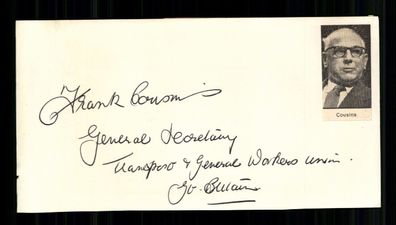 Frank Cousins
Cousins
General Secretary
Transport & General Workers Union.
Gt. Britain